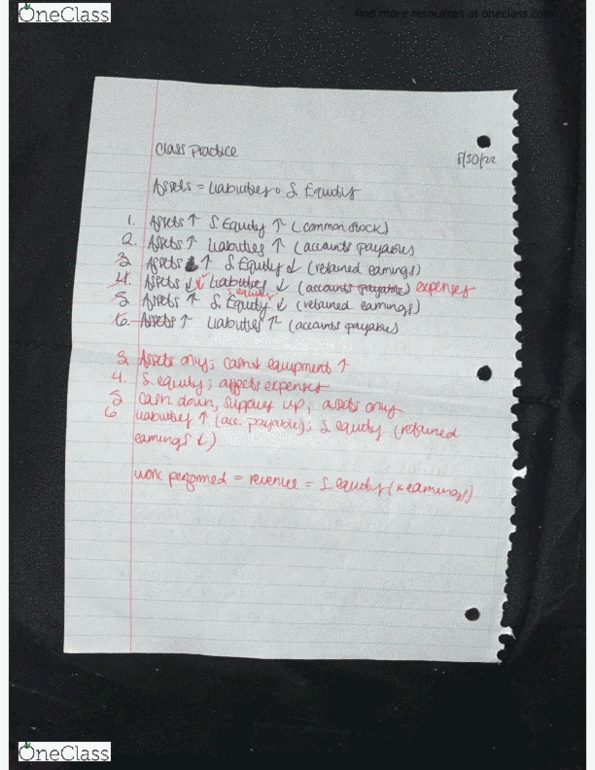 OneClass
find more resources at oneclass.com
Class Practice
8/30/22
Assets = Liabilities + S. Equity
1. Assets ↑ S. Equity ↑ (common stock)
2. Assets ↑ Liabilities ↑ (accounts payable)
3. Assets ↑ S. Equity ↓ (retained earnings)
4. Assets ↓ Liabilities ↓ (accounts payable) expenses
S. equity
5. Assets ↑ S. Equity ↓ (retained earnings)
6. Assets ↑ Liabilities ↑ (accounts payable)
3. Assets only; cash ↓ equipment ↑
4. S. equity; affects expenses
5. cash down, supplies up; assets only
6 Liabilities ↑ (acc. payable); S. equity (retained
earnings ↓)
work performed = revenue = S. equity (earnings)
OneClass